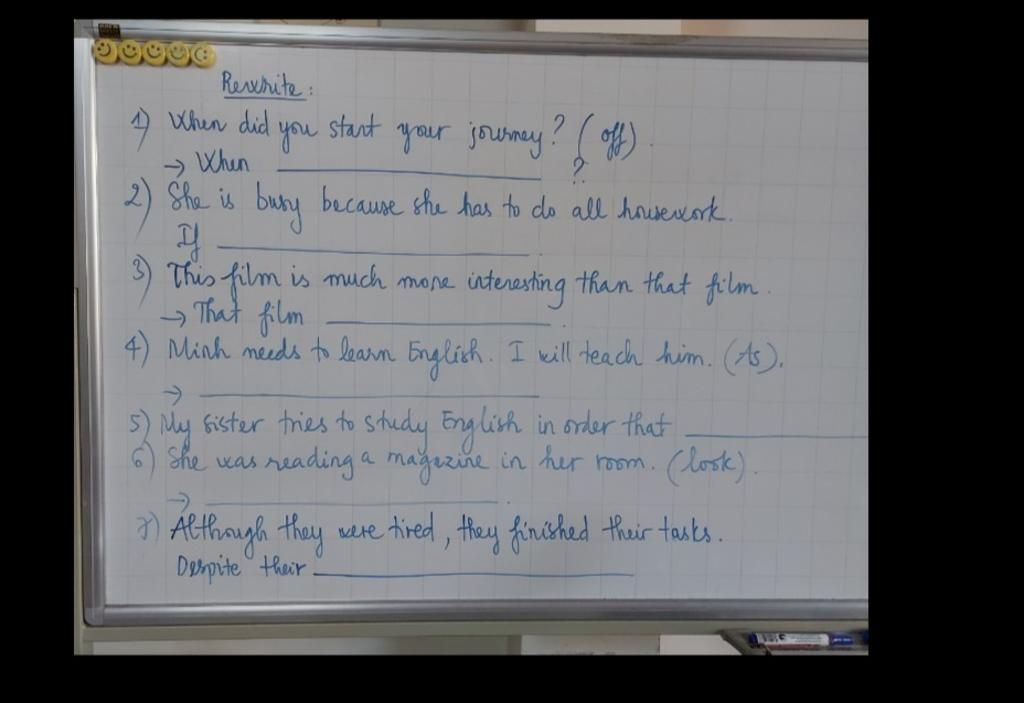 Rewrite:
1) When did you start your journey? (off).
→ When ____________ ?
2) She is busy because she has to do all housework.
If ____________.
3) This film is much more interesting than that film.
→ That film ____________.
4) Minh needs to learn English. I will teach him. (As).
→ ____________
5) My sister tries to study English in order that ____________
6) She was reading a magazine in her room. (look).
→ ____________.
7) Although they were tired, they finished their tasks.
Despite their ____________